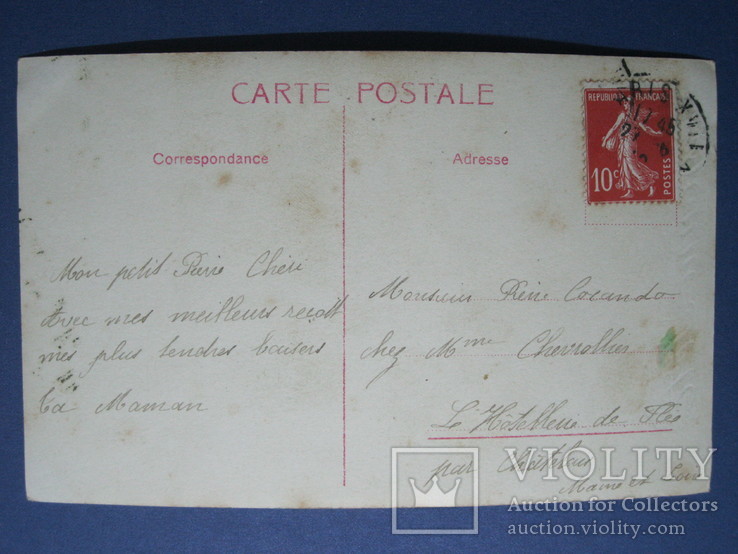 CARTE POSTALE
Correspondance
Adresse
REPUBLIQUE FRANÇAISE
10c
POSTES
17 45
Mon petit Pierre Chéri
avec mes meilleurs
mes plus tendres baisers
Ta Maman
Monsieur Pierre
chez Mme
L'Hôtellerie de Flée
par
Maine et Loire
VIOLITY
Auction for Collectors
auction.violity.com